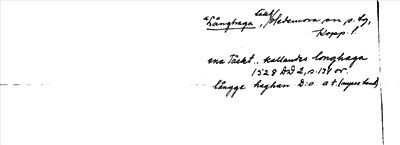 Långhaga, täkt, Hedemora sn o. tg,
Kopp. l.
ena Täckt, kallandes longhaga
1528 DD 2, s. 134 or.
långge haghan D:o a.t. (nyare hand)